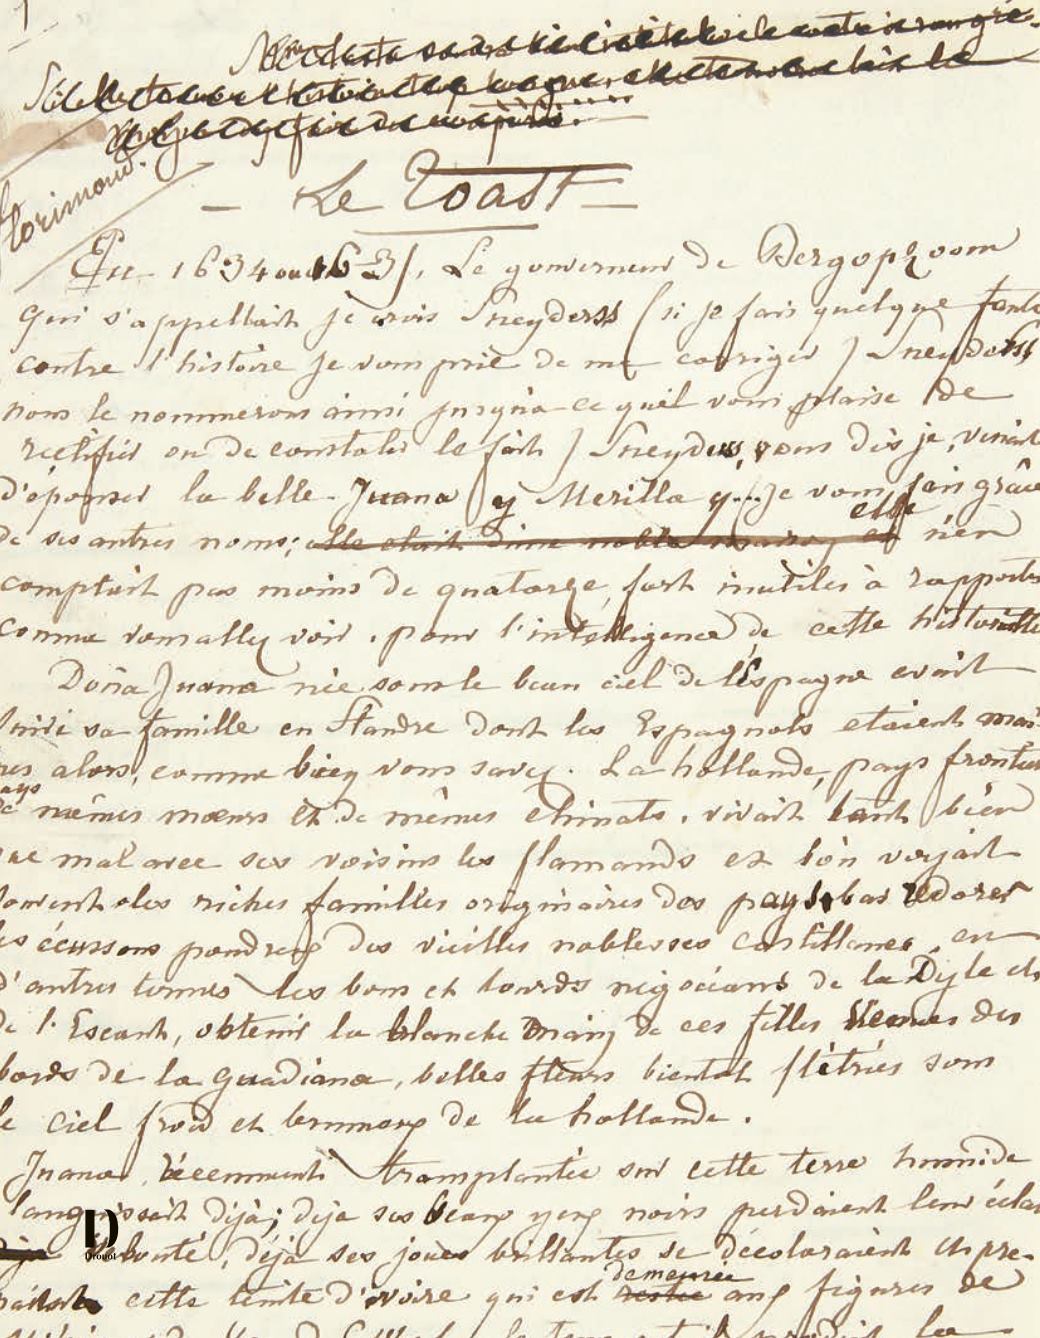 1
Florimond.
- Le Toast -
En 1634 ou 1635, Le gouverneur de Bergopzoom
qui s'appellait je crois Sneyderss (si je fais quelque faute
contre l'histoire je vous prie de me corriger) Sneyderss
nous le nommerons ainsi jusqu'a ce qu'il vous plaise de
rectifier ou de constater le fait) Sneyders, vous dis je, venait
d'épouser la belle Juana y Merilla y... je vous fais grâce
de ses autres noms; elle etait d'une noble maison et elle n'en
comptait pas moins de quatorze, fort inutiles à rapporter
comme vous allez voir, pour l'intelligence de cette historiette
Doña Juana née sous le beau ciel de l'Espagne avait
suivi sa famille en Flandre dont les Espagnols etaient maî
res alors, comme bien vous savez. La hollande, pays frontière
pays
de mêmes mœurs et de mêmes climats, vivait tant bien
que mal avec ses voisins les flamands et l'on voyait
souvent des riches familles originaires des pays bas redorer
les écussons poudreux des vieilles noblesses castillanes, en
d'autres termes les bons et lourds négociants de la Dyle et
de l'Escaut, obtenir la blanche main de ces filles venues des
bords de la Guadiana, belles fleurs bientot flétries sous
le ciel froid et brumeux de la hollande.
Juana, récemment transplantée sur cette terre humide
languissait déjà; déja ses beaux yeux noirs perdaient leur éclat
velouté, déjà ses joues brillantes se décoloraient et pre-
naient cette teinte d'ivoire qui est restée demeurée aux figures de
D
Drouot